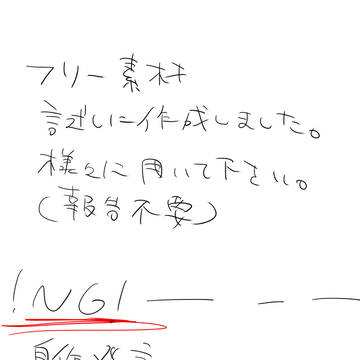 フリー素材
試しに作成しました。
様々に用いて下さい。
(報告不要)
!NG!